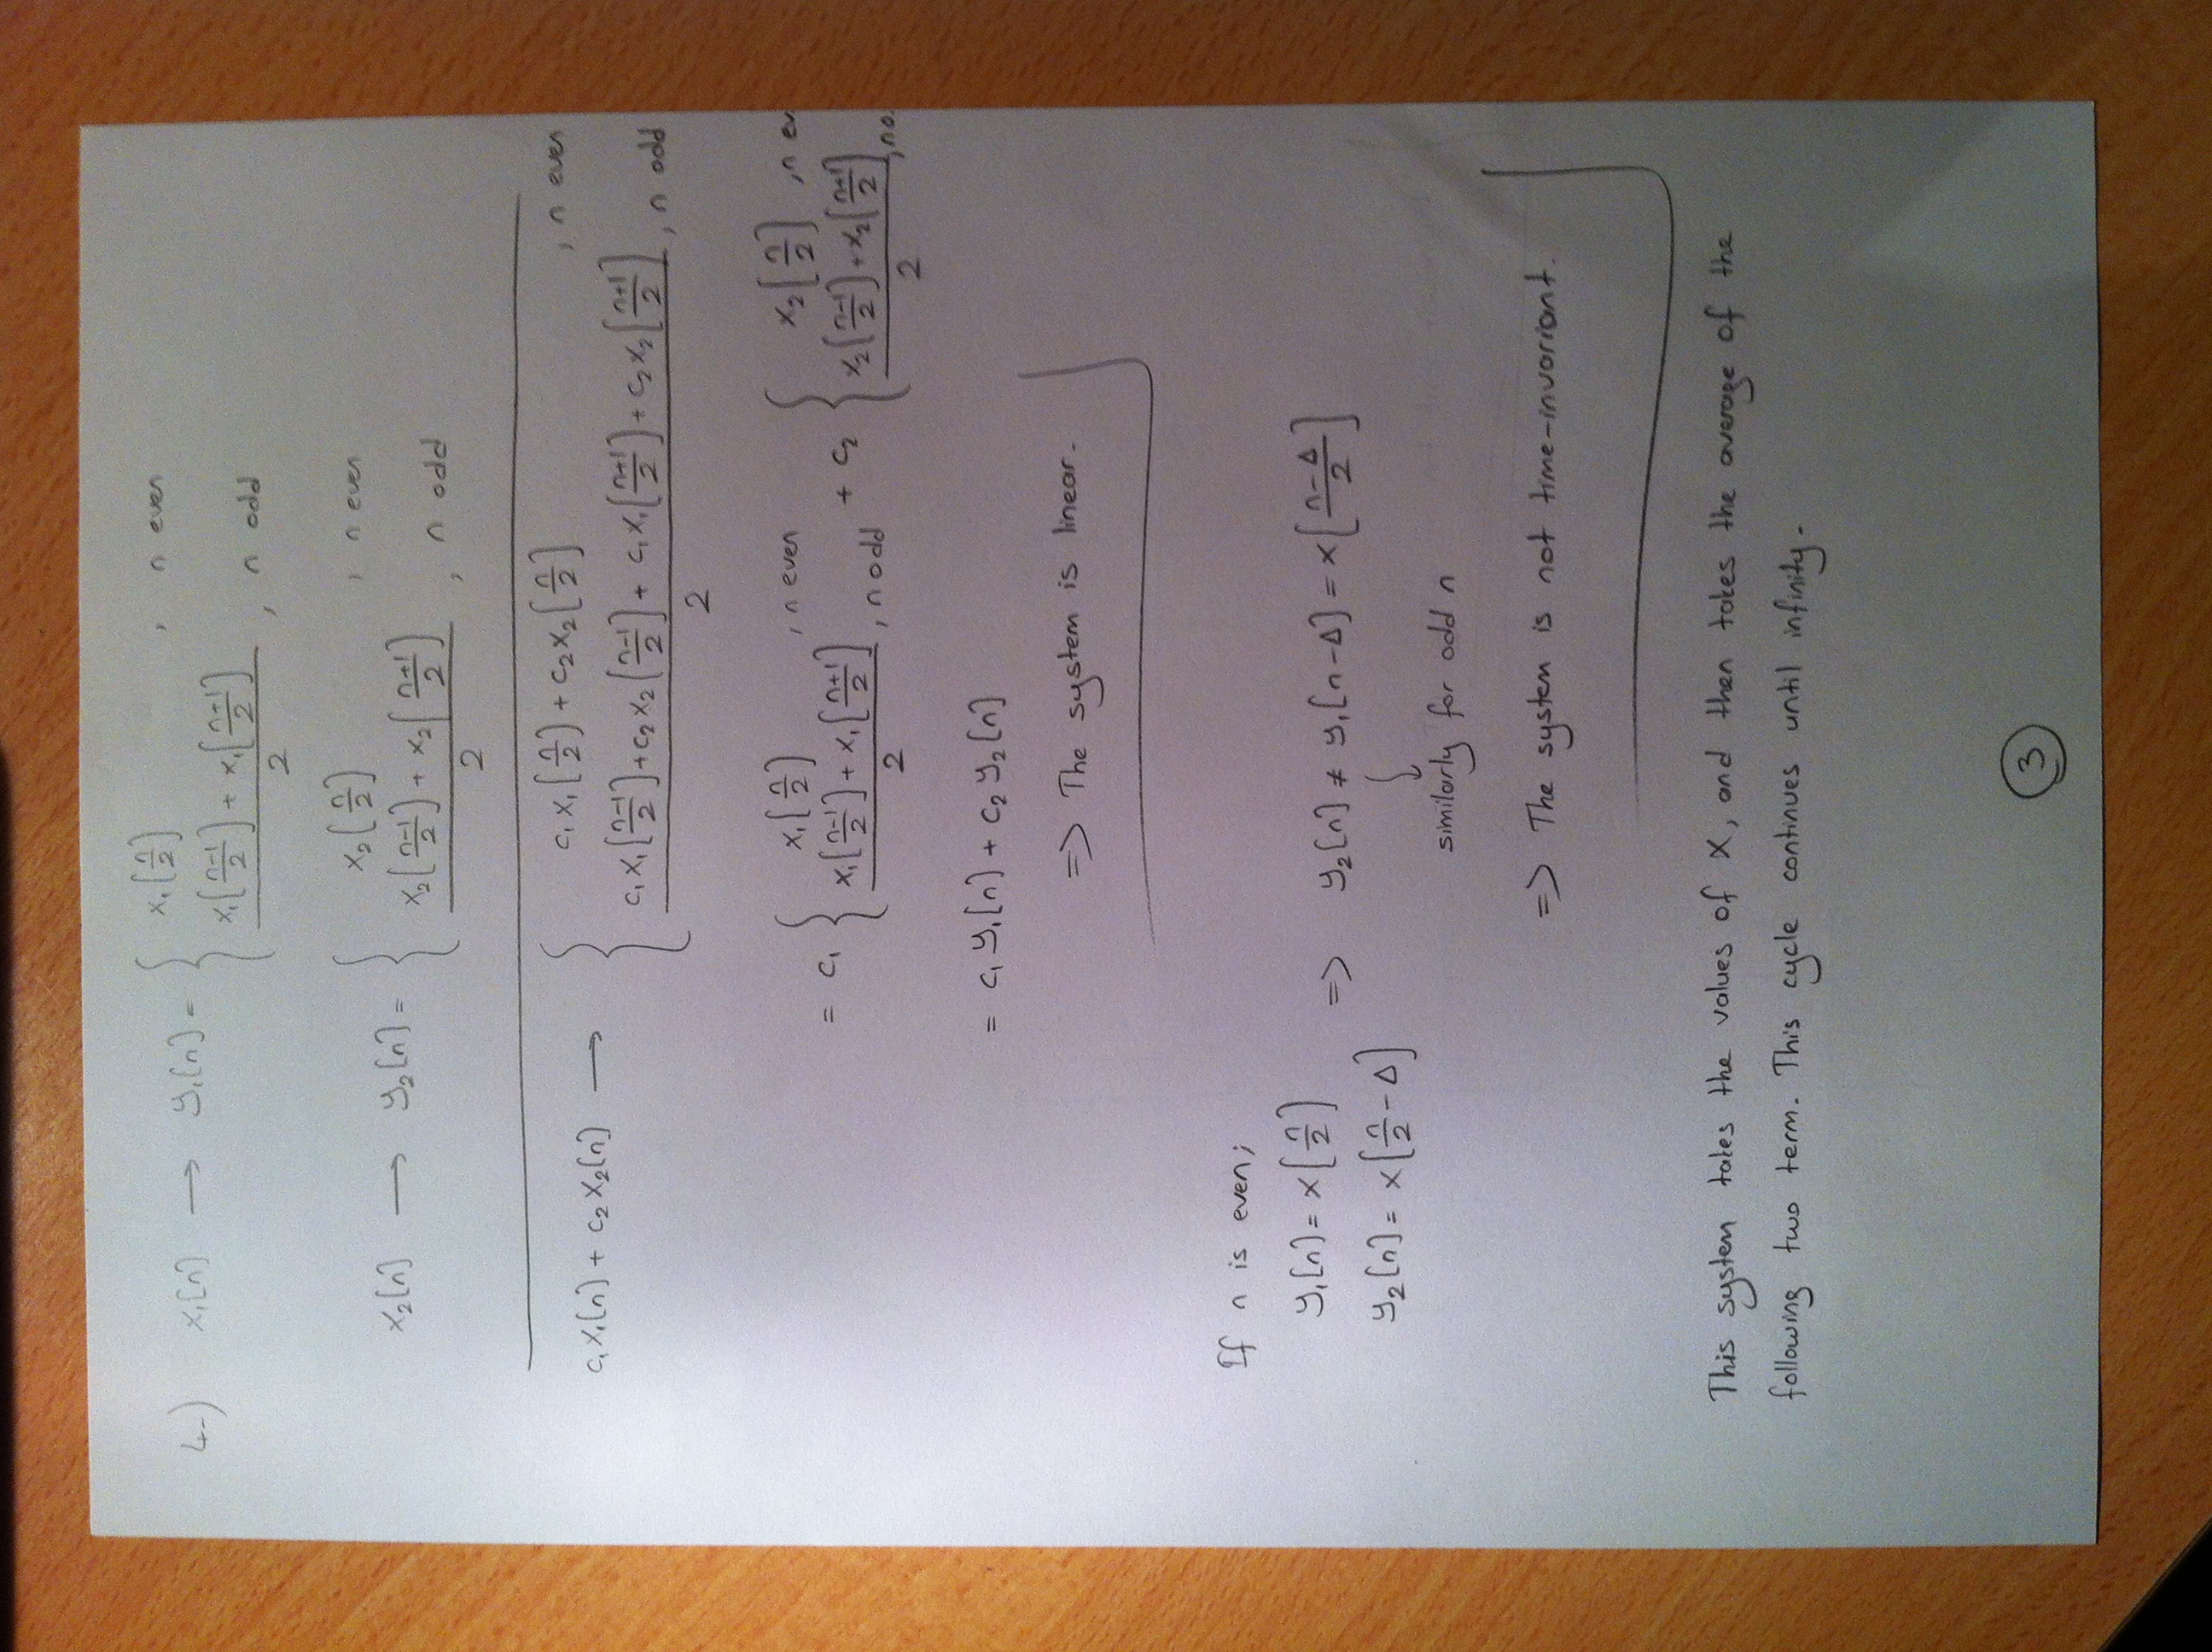 4-) x₁[n] → y₁[n] = { x₁[n/2] , n even
(x₁[(n-1)/2] + x₁[(n+1)/2])/2 , n odd
x₂[n] → y₂[n] = { x₂[n/2] , n even
(x₂[(n-1)/2] + x₂[(n+1)/2])/2 , n odd
c₁x₁[n] + c₂x₂[n] → { c₁x₁[n/2] + c₂x₂[n/2] , n even
(c₁x₁[(n-1)/2] + c₂x₂[(n-1)/2] + c₁x₁[(n+1)/2] + c₂x₂[(n+1)/2])/2 , n odd
= c₁ { x₁[n/2] , n even + c₂ { x₂[n/2] , n ev
(x₁[(n-1)/2] + x₁[(n+1)/2])/2 , n odd (x₂[(n-1)/2] + x₂[(n+1)/2])/2 , n o
= c₁y₁[n] + c₂y₂[n]
=> The system is linear.
If n is even;
y₁[n] = x[n/2]
=> y₂[n] ≠ y₁[n-Δ] = x[(n-Δ)/2]
y₂[n] = x[n/2 - Δ]
similarly for odd n
=> The system is not time-invariant.
This system takes the values of x, and then takes the average of the
following two term. This cycle continues until infinity.
3